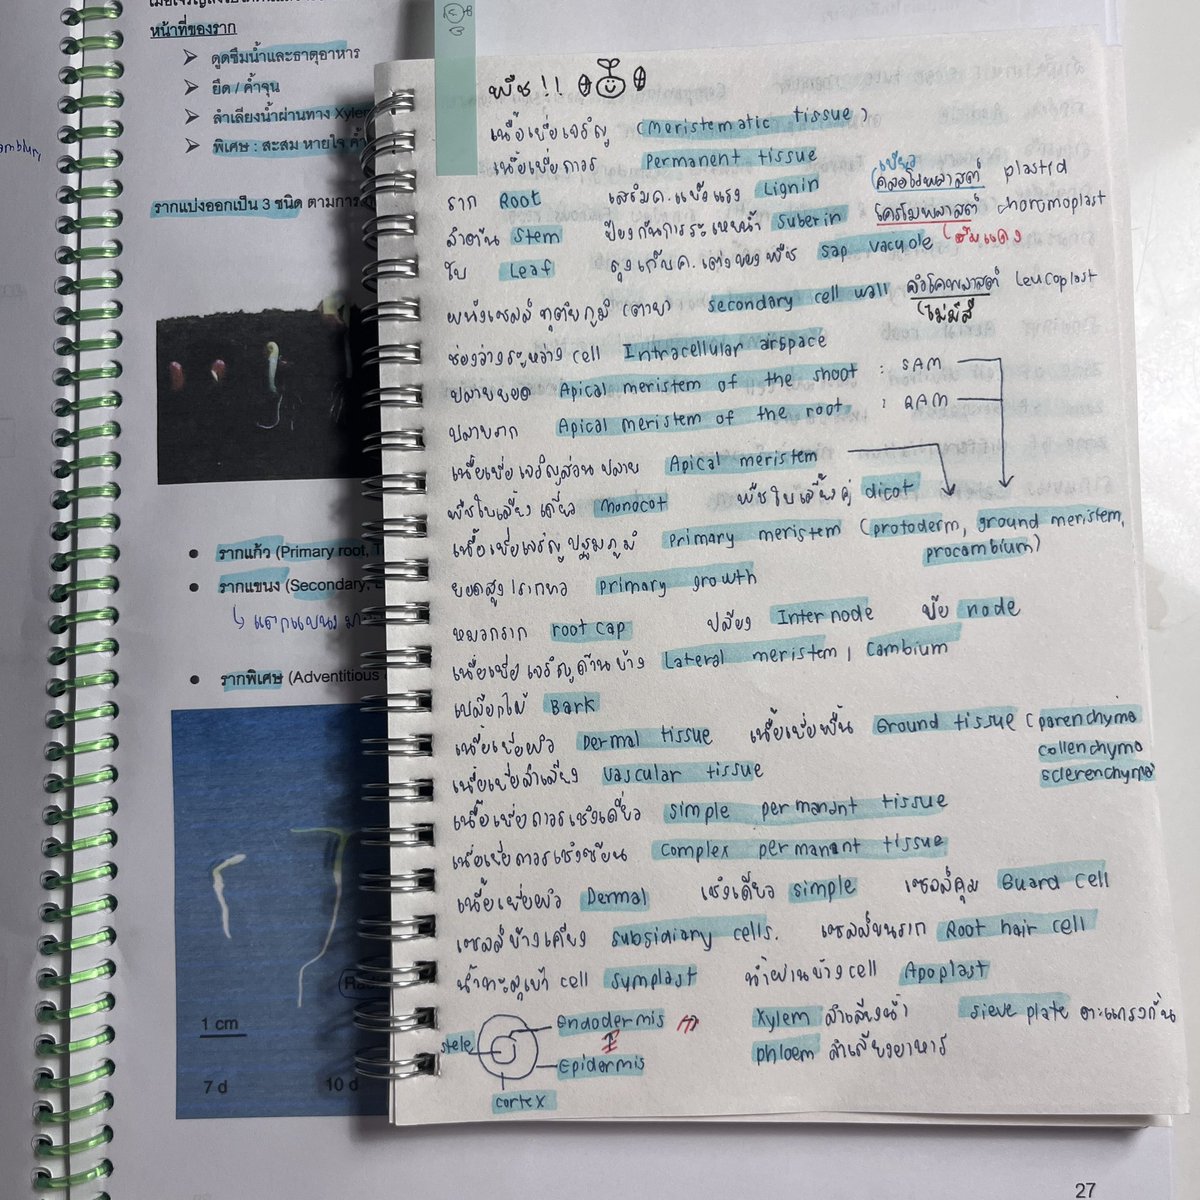 หน้าที่ของราก
➢ ดูดซึมน้ำและธาตุอาหาร
➢ ยึด / ค้ำจุน
➢ ลำเลียงน้ำผ่านทาง Xylem
➢ พิเศษ : สะสม หายใจ ค้ำ
รากแบ่งออกเป็น 3 ชนิด ตามการ
• รากแก้ว (Primary root, T
• รากแขนง (Secondary,
↳ แตกแขนงมา
• รากพิเศษ (Adventitious
1 cm
7 d 10 d
27
พืช !!
เนื้อเยื่อเจริญ (Meristematic tissue)
เนื้อเยื่อถาวร Permanent tissue
ราก Root เสริมค.แข็งแรง Lignin เขียว คลอโรพลาสต์ plastid
ลำต้น Stem ป้องกันการระเหยน้ำ suberin โครโมพลาสต์ choromoplast
ใบ Leaf ถุงเก็บค.เต่งของพืช sap vacuole (ส้มแดง
ผนังเซลล์ทุติยภูมิ (ตาย) secondary cell wall ลิวโคพลาสต์ leucoplast
ไม่มีสี
ช่องว่างระหว่าง cell Intracellular airspace
ปลายยอด Apical meristem of the shoot : SAM
ปลายราก Apical meristem of the root : RAM
เนื้อเยื่อเจริญส่วนปลาย Apical meristem
พืชใบเลี้ยงเดี่ยว monocot พืชใบเลี้ยงคู่ dicot
เนื้อเยื่อเจริญปฐมภูมิ Primary meristem (protoderm, ground meristem,
procambium)
ยอดสูง/รากยาว primary growth
หมวกราก root cap ปล้อง Internode ข้อ node
เนื้อเยื่อเจริญด้านข้าง Lateral meristem, Cambium
เปลือกไม้ Bark
เนื้อเยื่อผิว Dermal tissue เนื้อเยื่อพื้น Ground tissue (parenchyma
collenchyma
เนื้อเยื่อลำเลียง vascular tissue sclerenchyma
เนื้อเยื่อถาวรเชิงเดี่ยว simple permanant tissue
เนื้อเยื่อถาวรเชิงซ้อน complex permanant tissue
เนื้อเยื่อผิว Dermal เชิงเดี่ยว simple เซลล์คุม Guard cell
เซลล์ข้างเคียง subsidiary cells. เซลล์ขนราก Root hair cell
น้ำทะลุเข้า cell symplast น้ำผ่านข้าง cell Apoplast
Endodermis Xylem ลำเลียงน้ำ sieve plate ตะแกรงกั้น
stele
Epidermis phloem ลำเลียงอาหาร
cortex